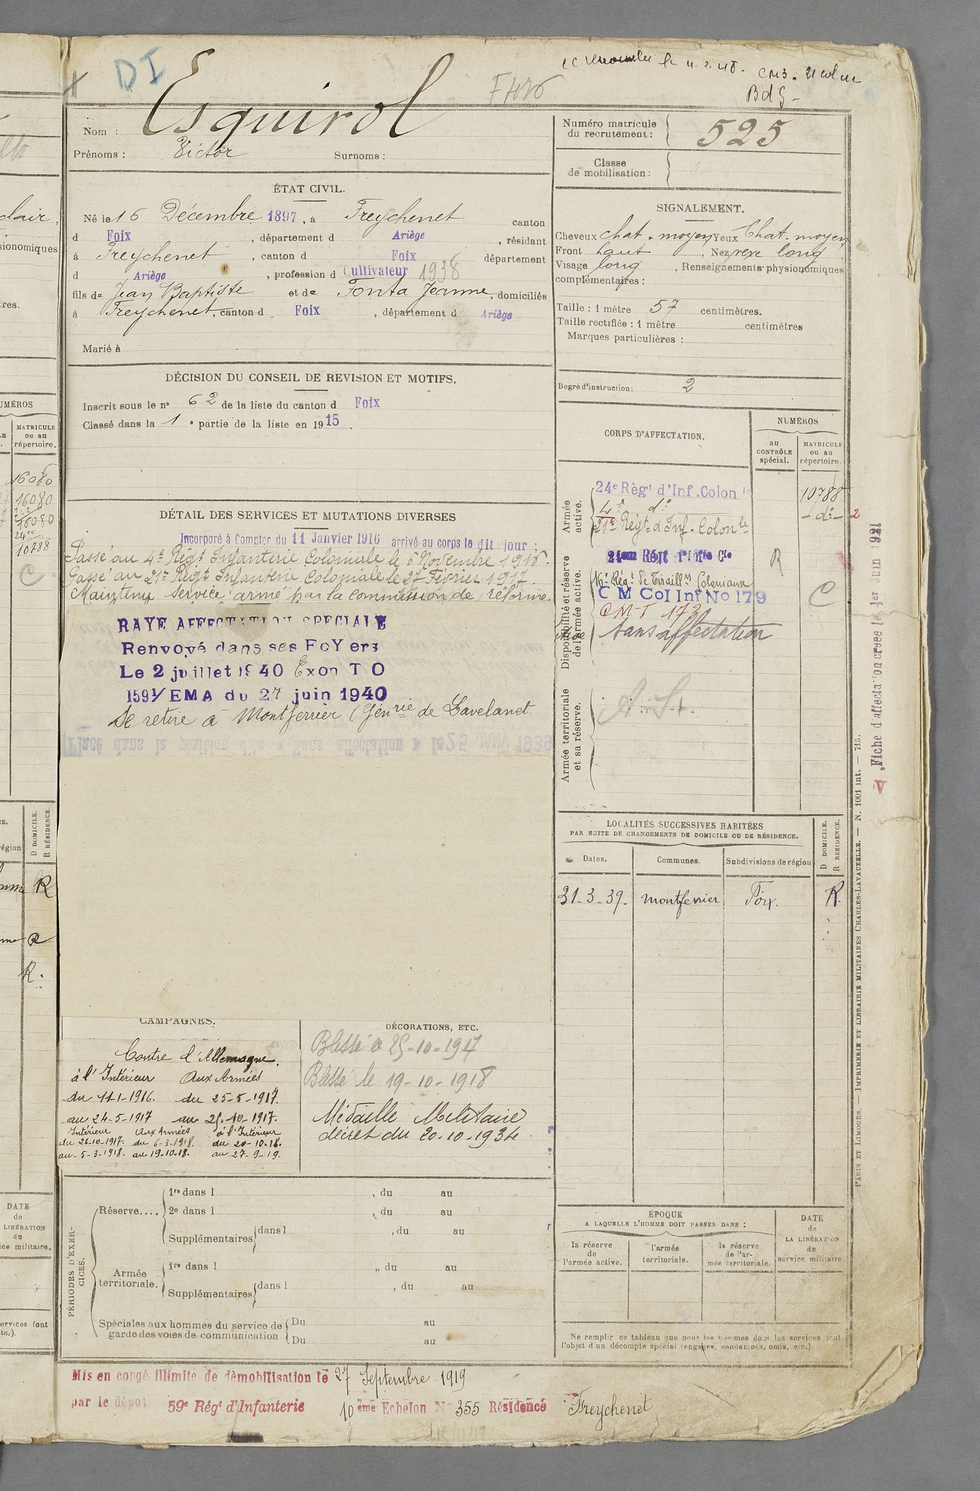 DI
F426
BdG -
Nom : Esquirol
Prénoms : Victor Surnoms :
Numéro matricule du recrutement : 525
Classe de mobilisation :
ÉTAT CIVIL.
Né le 16 Décembre 1897, à Freychenet canton
d Foix, département d Ariège, résidant
à Freychenet, canton d Foix département
d Ariège, profession d Cultivateur 1938
fils de Jean Baptiste et de Fonta Jeanne, domiciliés
à Freychenet, canton d Foix, département d Ariège
Marié à
SIGNALEMENT.
Cheveux chat. moyen Yeux Chat. moyen
Front haut, Nez long
Visage long, Renseignements physionomiques
complémentaires :
Taille : 1 mètre 57 centimètres.
Taille rectifiée : 1 mètre centimètres
Marques particulières :
Degré d'instruction : 2
DÉCISION DU CONSEIL DE REVISION ET MOTIFS.
Inscrit sous le n° 62 de la liste du canton d Foix
Classé dans la 1e partie de la liste en 1915.
DÉTAIL DES SERVICES ET MUTATIONS DIVERSES
Incorporé à Compter du 11 Janvier 1916 arrivé au corps le dit jour :
Passé au 4e Régt Infanterie Coloniale le 6 Novembre 1916.
Passé au 21e Régt Infanterie Coloniale le 27 Février 1917.
Maintenu service armé par la commission de réforme
RAYE AFFECTATION SPECIALE
Renvoyé dans ses FoYers
Le 2 juillet 1940 Exon T O
1591/EMA du 27 juin 1940
Se retire à Montferrier (Gen rie de Lavelanet
CORPS D'AFFECTATION.
NUMÉROS
au CONTRÔLE spécial.
MATRICULE ou au répertoire.
Armée active.
24e Règt d'Inf. Colon le
10788
4e do
- do -
21e Régt d'Inf. Colon le
Disponibilité et réserve de l'armée active.
R
16e Régt de Tiraill rs Coloniaux
C M Col Inf No 179
C
C M T 173
Sans affectation
Armée territoriale et sa réserve.
Fiche d'affectation créée le 1er Juin 1921
LOCALITÉS SUCCESSIVES HABITÉES
PAR SUITE DE CHANGEMENTS DE DOMICILE OU DE RÉSIDENCE.
Dates. Communes. Subdivisions de région D DOMICILE. R RÉSIDENCE.
21-3-39. montferrier Foix. R.
CAMPAGNES.
Contre l'Allemagne.
à l'Intérieur Aux Armées
du 11-1-1916. du 25-5-1917.
au 24-5-1917 au 25-10-1917.
Intérieur Aux Armées à l'Intérieur
du 26-10-1917. du 6-3-1918. du 20-10-18.
au 5-3-1918. au 19-10-18. au 27-9-19.
DÉCORATIONS, ETC.
Blessé le 25-10-1917
Blessé le 19-10-1918
Médaille Militaire
décret du 20-10-1934.
PÉRIODES D'EXERCICES.
Réserve....
1re dans l , du au
2e dans l , du au
Supplémentaires dans l , du au
Armée territoriale.
1re dans l , du au
Supplémentaires dans l , du au
Spéciales aux hommes du service de garde des voies de communication
Du au
Du au
ÉPOQUE
A LAQUELLE L'HOMME DOIT PASSER DANS :
la réserve de l'armée active.
l'armée territoriale.
la réserve de l'armée territoriale.
DATE de LA LIBÉRATION du service militaire.
Ne remplir ce tableau que pour les hommes dont les services font
l'objet d'un décompte spécial (engagés, condamnés, omis, etc.)
PARIS ET LIMOGES. — IMPRIMERIE ET LIBRAIRIE MILITAIRES CHARLES-LAVAUZELLE. — N. 1001 int. — 715.
Mis en congé illimité de démobilisation le 27 Septembre 1919
par le dépôt 59e Régt d'Infanterie 10 ème Echelon N° 355 Résidence Freychenet